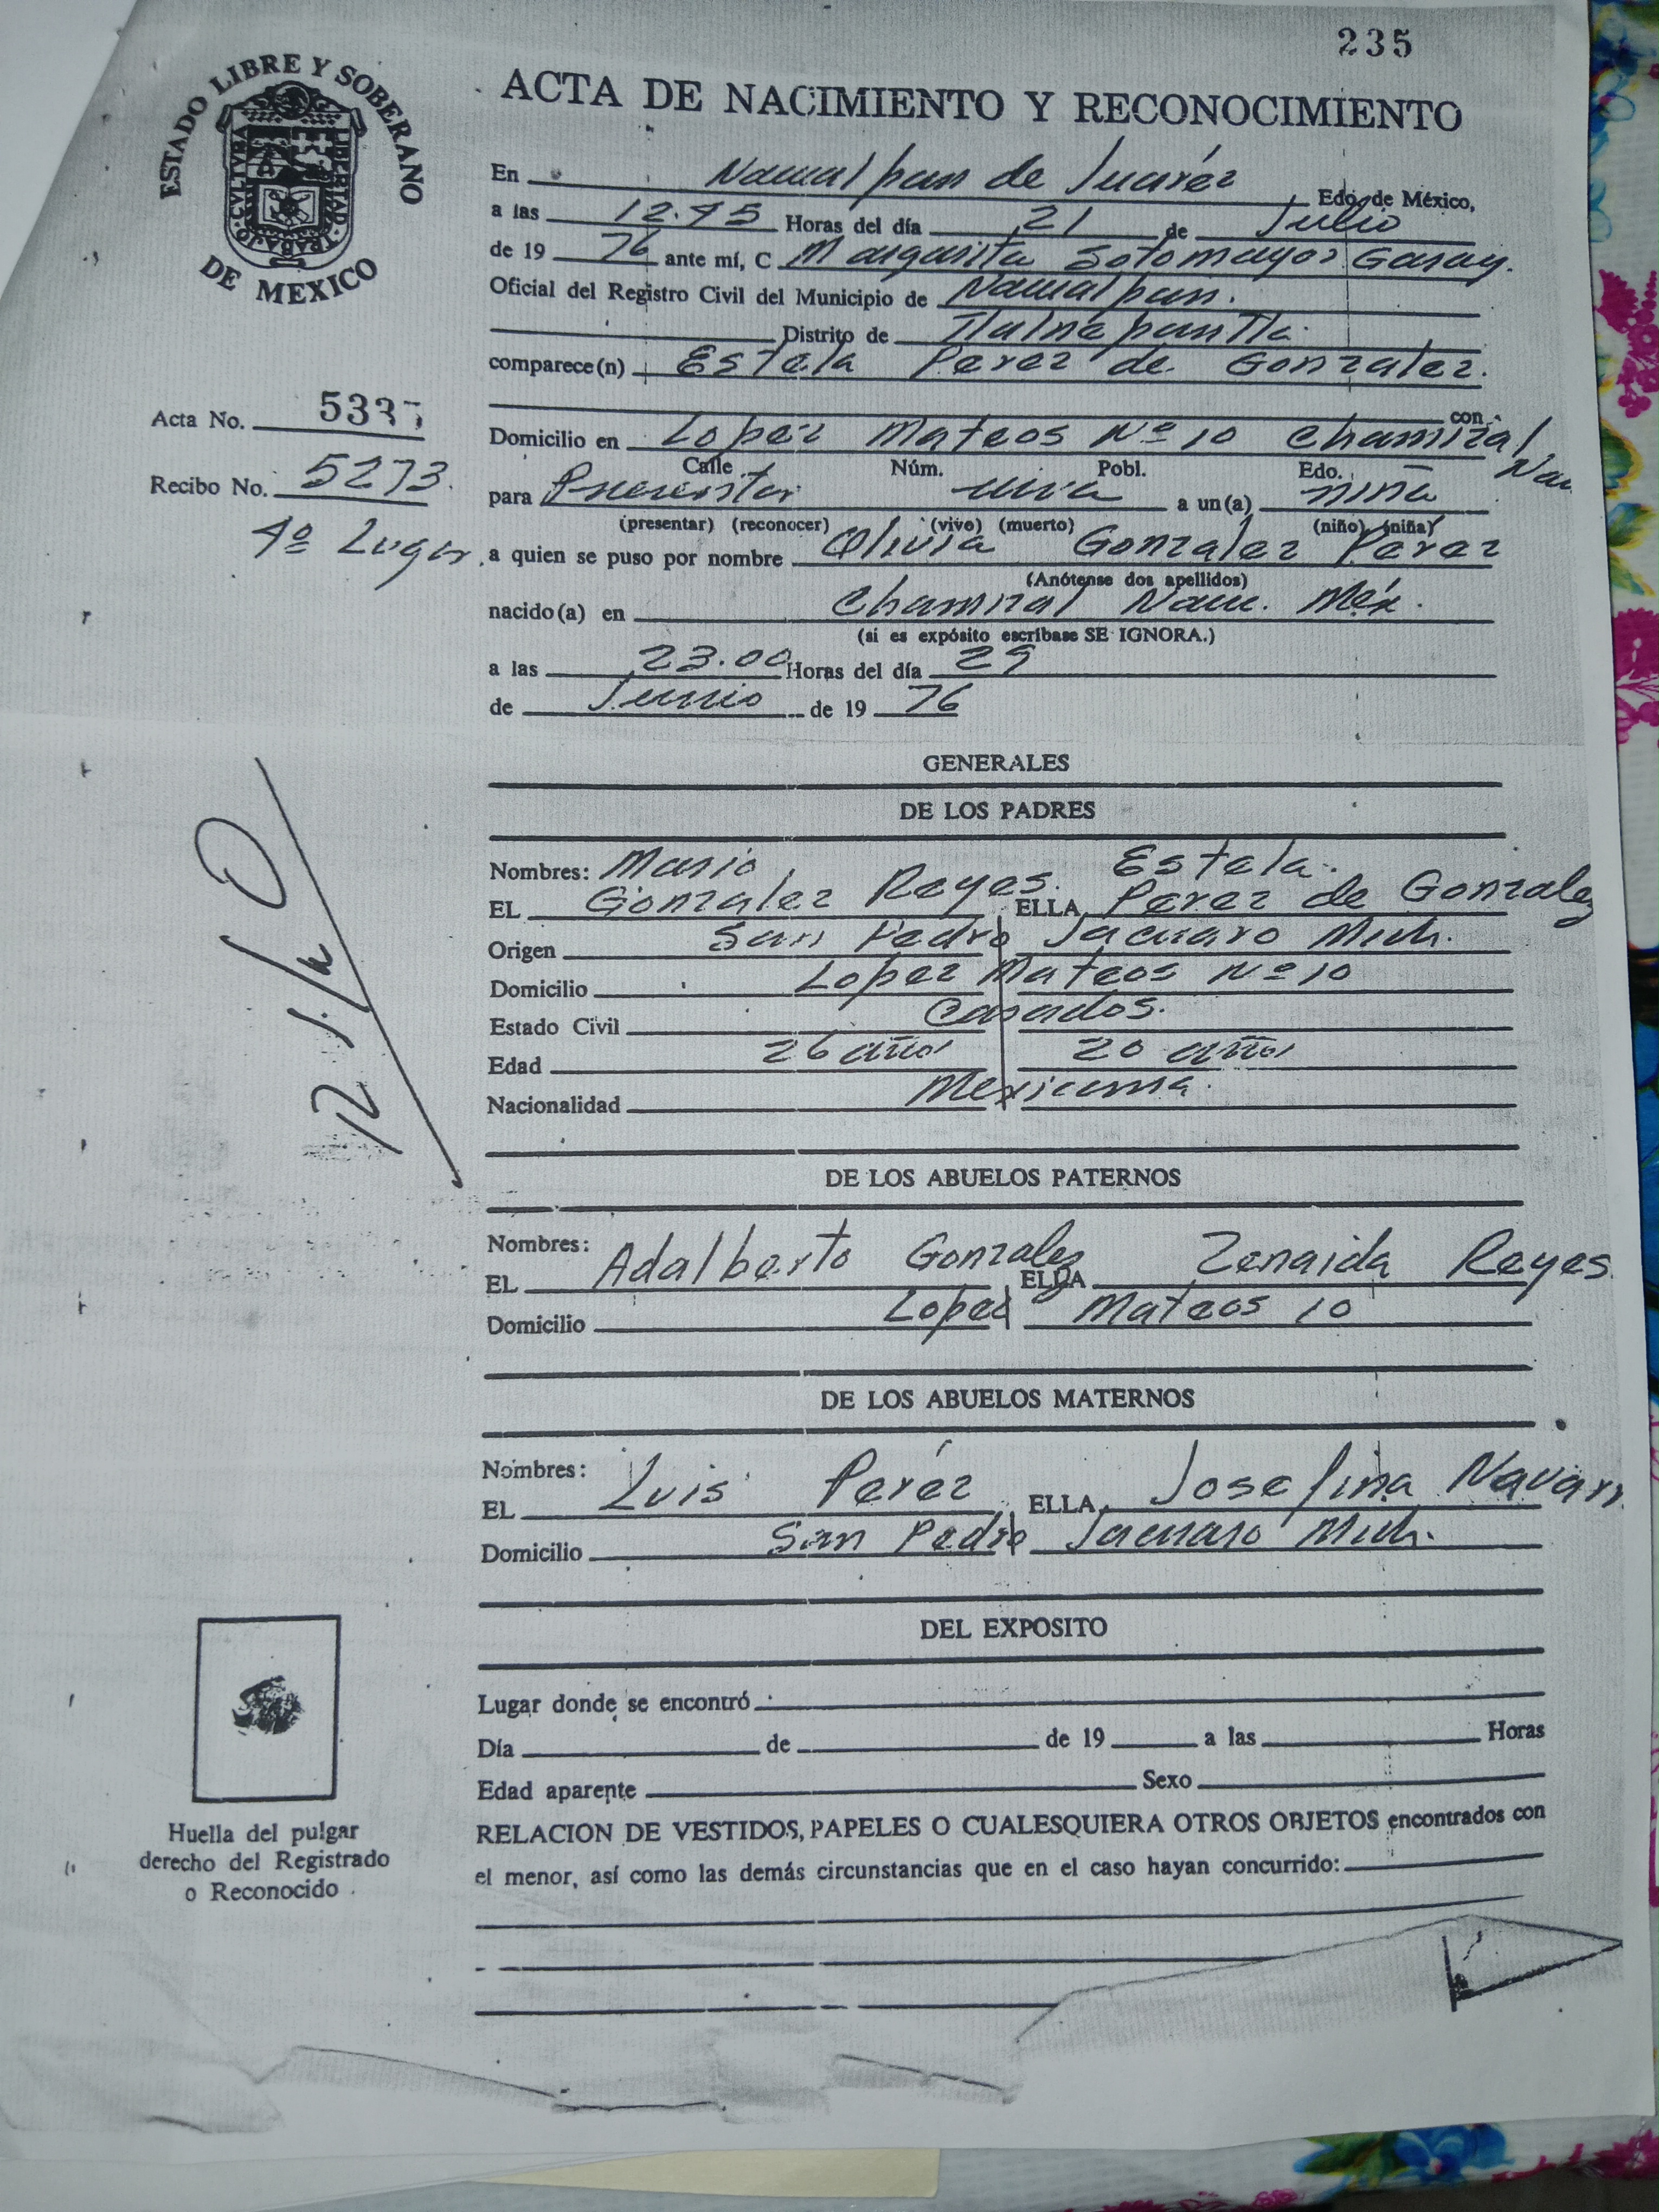 235
ESTADO LIBRE Y SOBERANO
DE MEXICO
CVLTVRA
LIBERTAD
TRABAJO
ACTA DE NACIMIENTO Y RECONOCIMIENTO
En Naucalpan de Juaréz Edo. de México,
a las 12.45 Horas del día 21 de Julio
de 19 76 ante mí, C Margarita Sotomayor Garay.
Oficial del Registro Civil del Municipio de Naucalpan.
Distrito de Tlalnepantla.
comparece(n) Estela Perez de Gonzalez.
con
Acta No.
Domicilio en Lopez Mateos Nº 10 Chamizal Nau
Calle Núm. Pobl. Edo.
Recibo No. 5273.
para Presentar viva a un(a) niña
(presentar) (reconocer) (vivo) (muerto) (niño) (niña)
4º Lugar
a quien se puso por nombre Olivia Gonzalez Perez
(Anótense dos apellidos)
nacido(a) en Chamizal Nau. Méx.
(si es expósito escríbase SE IGNORA.)
a las 23.00 Horas del día 29
de Junio de 19 76
GENERALES
DE LOS PADRES
Nombres: Mario Estela.
EL Gonzalez Reyes. ELLA Perez de Gonzalez
Origen San Pedro Jacuaro Mich.
Domicilio Lopez Mateos Nº 10
Estado Civil Casados.
Edad 26 años 20 años
Nacionalidad Mexicana.
DE LOS ABUELOS PATERNOS
Nombres:
EL Adalberto Gonzalez ELLA Zenaida Reyes
Domicilio Lopez Mateos 10
DE LOS ABUELOS MATERNOS
Nombres:
EL Luis Peréz ELLA Josefina Navarr
Domicilio San Pedro Jacuaro Mich.
DEL EXPOSITO
Lugar donde se encontró
Día de de 19 a las Horas
Edad aparente Sexo
RELACION DE VESTIDOS, PAPELES O CUALESQUIERA OTROS OBJETOS encontrados con
el menor, así como las demás circunstancias que en el caso hayan concurrido:
Huella del pulgar
derecho del Registrado
o Reconocido